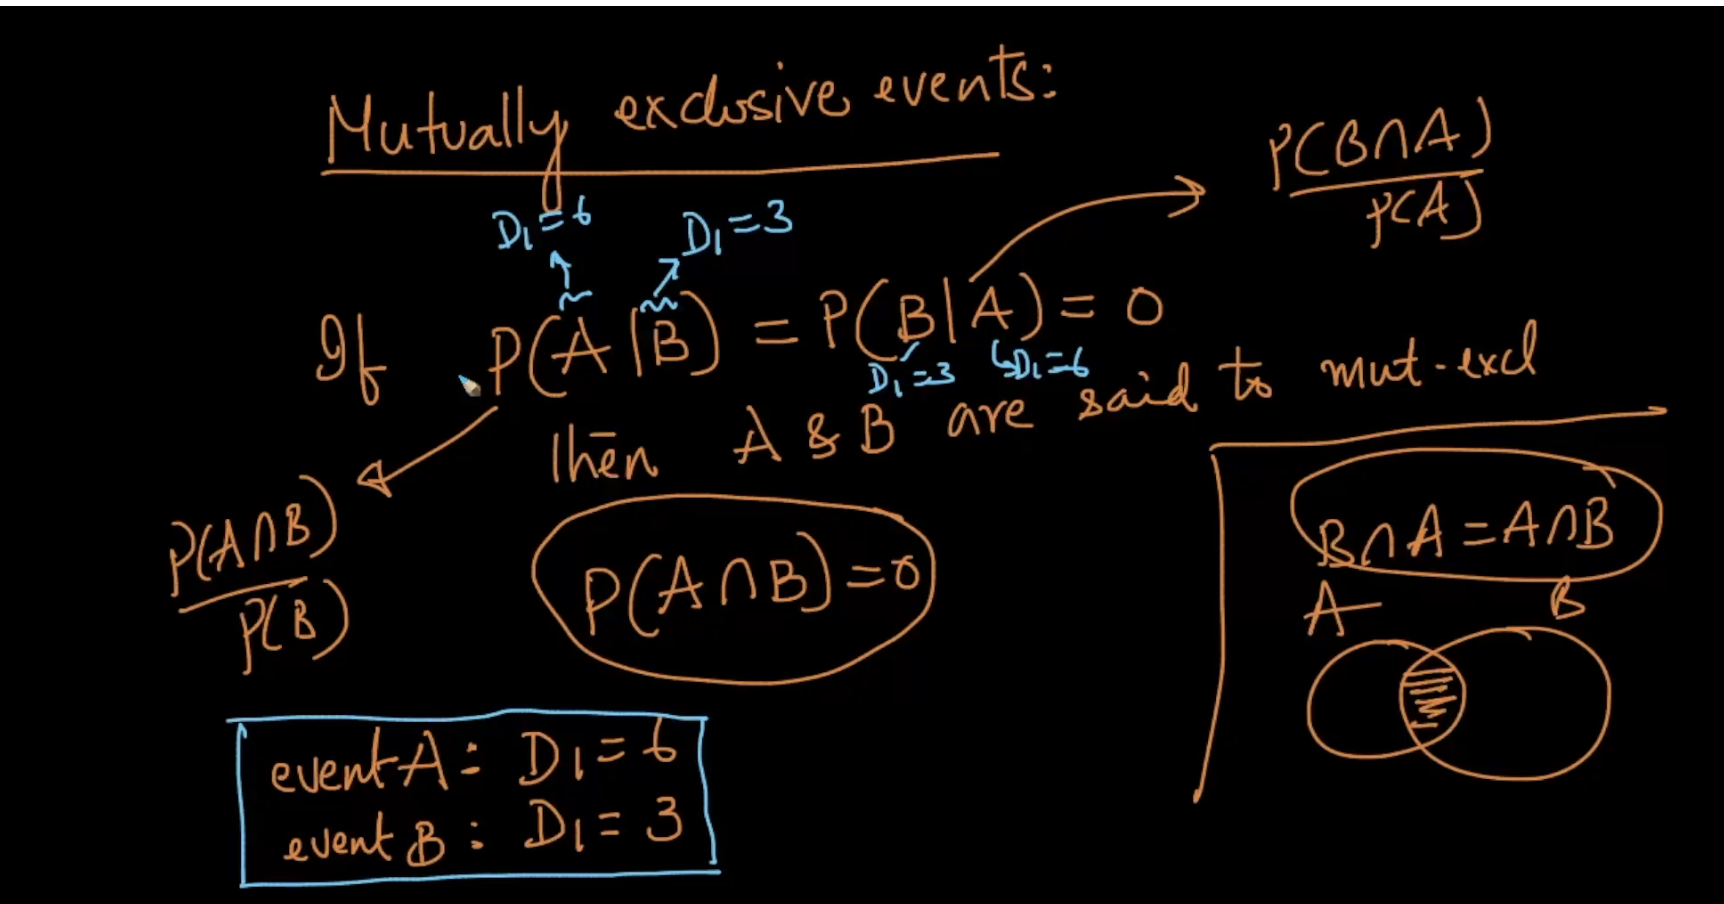 Mutually exclusive events:
P(B∩A)
P(A)
D1=6
D1=3
If P(A|B) = P(B|A) = 0
D1=3
D1=6
Then A & B are said to mut-excl
P(A∩B)
P(B)
P(A∩B)=0
B∩A=A∩B
A B
event A: D1=6
event B: D1=3